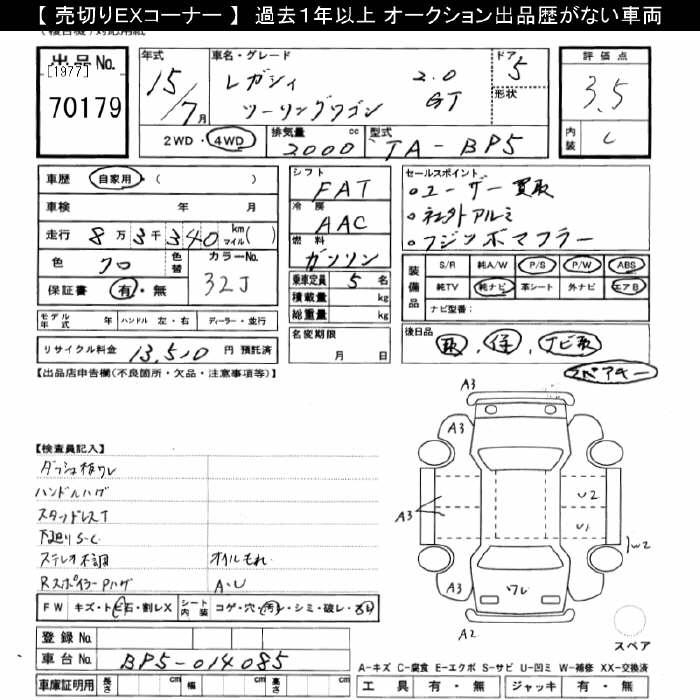 【 売切りEXコーナー 】 過去1年以上 オークション出品歴がない車両
出品No.
[1977]
70179
年式
15/7月
車名・グレード
レガシィ 2.0
ツーリングワゴン GT
ドア
5
形状
評価点
3.5
内装
C
2WD・4WD
排気量 cc
2000
型式
TA-BP5
車歴 自家用・( )
車検 年 月
走行 8万3千340 km マイル( )
色 クロ 色替
カラーNo. 32J
保証書 有・無
モデル年式 年 ハンドル 左・右 ディーラー・並行
リサイクル料金 13,510 円 預託済
シフト
FAT
冷房
AAC
燃料
ガソリン
乗車定員 5 名
積載量 kg
総重量 kg
名変期限
月 日
セールスポイント
○ユーザー買取
○社外アルミ
○フジツボマフラー
装備品
S/R 純A/W P/S P/W ABS
純TV 純ナビ 革シート 外ナビ エアB
ナビ型番:
後日品
取 , 保 , ナビ取
スペアキー
【出品店申告欄(不良個所・欠品・注意事項等)】
【検査員記入】
ダッシュ板ワレ
ハンドルハゲ
下廻りS-C
ステレオ不調
オイルもれ
RスポイラーPハゲ
A-U
FW キズ・トビ石・割レX
シート内装 コゲ・穴・汚レ・シミ・破レ・
登録No.
車台No. BP5-014085
車庫証明用 長さ cm 幅 cm 高さ cm
A3
A3
A3
A3
A3
A3
U2
U1
W2
ワレ
A2
スペア
A-キズ C-腐食 E-エクボ S-サビ U-凹ミ W-補修 XX-交換済
工具 有・無 ジャッキ 有・無